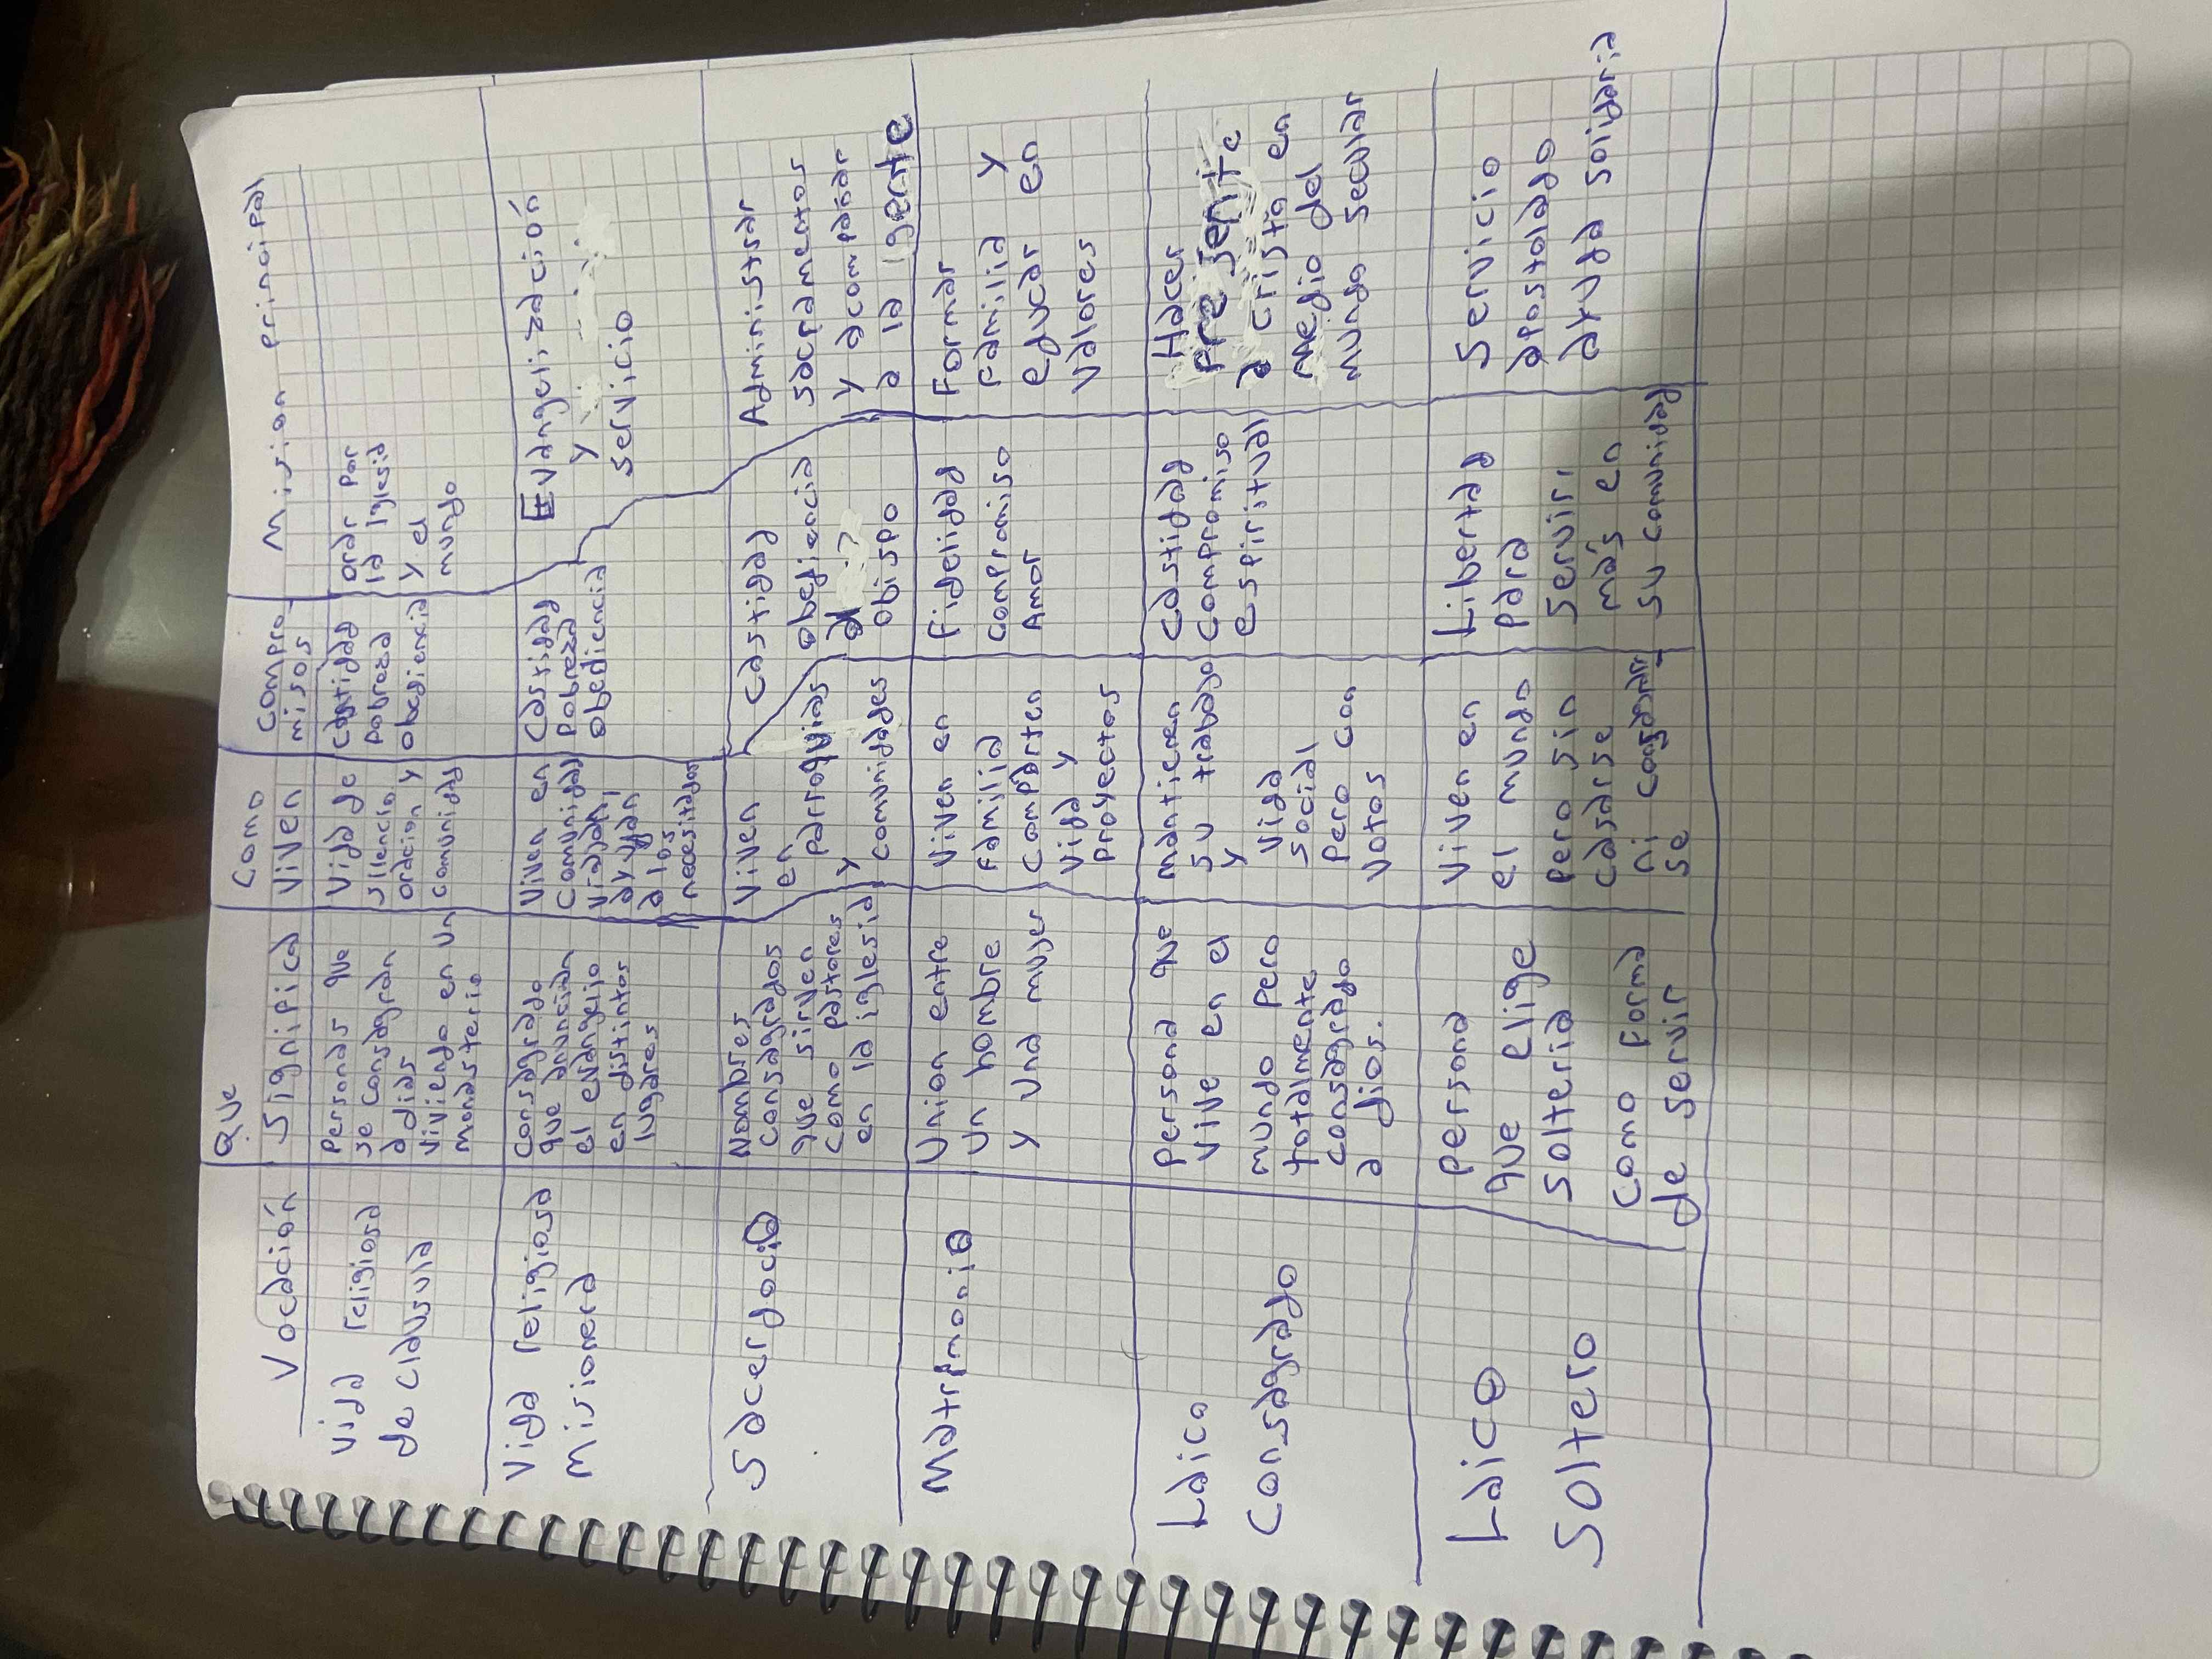 Que
Vocación Significa
Como
Viven
Compro
misos
Mision principal
Vida religiosa
de clausula
Personas que
se consagran
a dias
viviendo en un
monasterio
Vida de
silencio
oracion y
comunidad
Castidad
pobreza
obediencia
orar por
la iglesia
y el
mundo
Vida religiosa
misionera
Consagrado
que anuncian
el evangelio
en distintos
lugares
Viven en
Comunidad
viajan,
ayudan
a los
necesitados
Castidad
Pobreza
obediencia
Evangelización
y
servicio
Sacerdocio
Nombres
consagrados
que sirven
como pastores
en la iglesia
Viven
en
parroquias
y
comunidades
Castidad
obediencia
al
obispo
Administrar
sacramentos
y acompañar
a la gente
Matrimonio
Union entre
un hombre
y una mujer
Viven en
familia
Comparten
vida y
proyectos
Fidelidad
compromiso
Amor
Formar
familia y
educar en
valores
Laico
Consagrado
Persona que
vive en el
mundo pero
totalmente
consagrado
a dios.
mantienen
su trabajo
y vida
social
Pero con
votos
Castidad
Compromiso
espiritual
Hacer
presente
a cristo en
medio del
mundo secular
Laico
Soltero
Persona
que elige
solteria
como forma
de servir
Viven en
el mundo
pero sin
casarse
ni consagrar
se
Libertad
para
servir
más en
su comunidad
Servicio
apostolado
ayuda solidaria